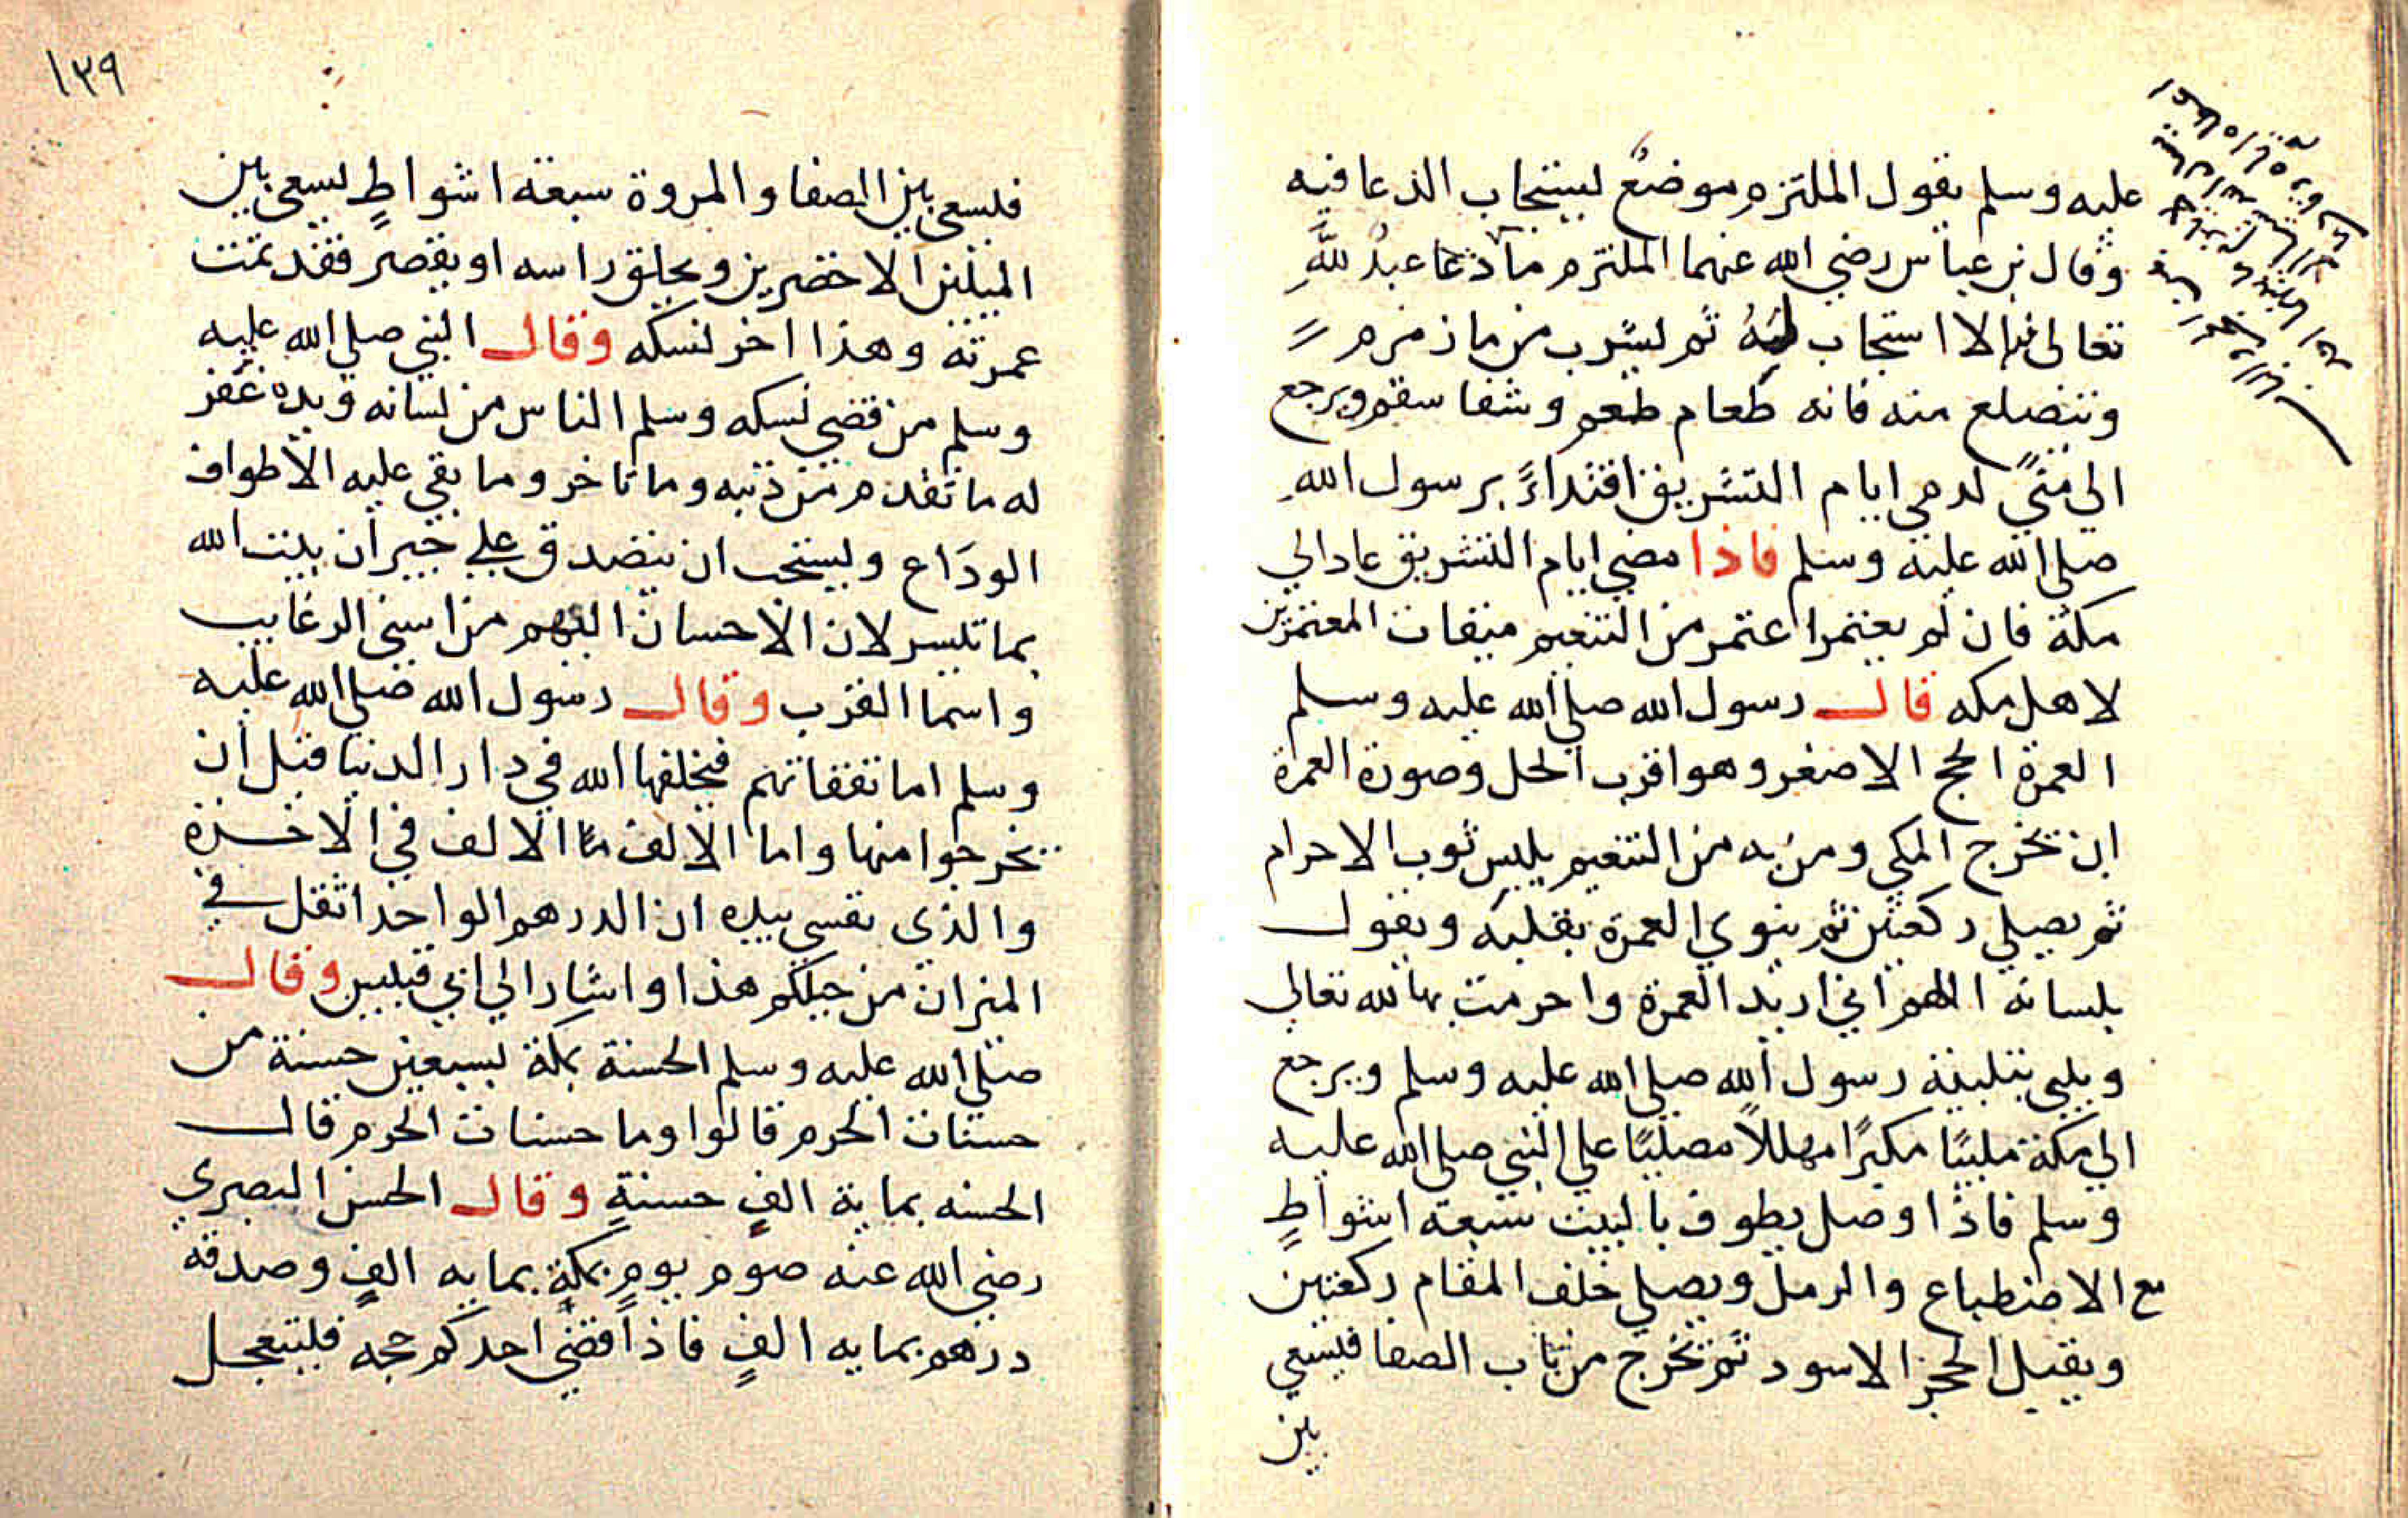 عليه وسلم يقول الملتزم موضعٌ ليستجاب الدعا فيه
وقال بن عباس رضي الله عنهما الملتزم ما دعا عبدُ للهِ
تعالى فيه الا استجاب لَهُ ثم ليشرب من ما زمزم
ويتضلع منه فانه طعام طعم وشفا سقم ويرجع
الى منىً لرمي ايام التشريق اقتداءً برسول اللهِ
صلى الله عليه وسلم فاذا مضى ايام التشريق عاد الي
مكة فان لم يعتمر اعتمر من التنعيم ميقات المعتمرين
لاهل مكه قال رسول الله صلى الله عليه وسلم
العمرة الحج الاصغر وهو اقرب الحل وصورة العمرة
ان يخرج المكي ومن به من التنعيم يلبس ثوب الاحرام
ثم يصلي ركعتين ثم ينوي العمرة بقلبه ويقول
بلسانه اللهم اني اريد العمرة واحرمت بها لله تعالى
ويلبي بتلبية رسول الله صلى الله عليه وسلم ويرجع
الى مكة ملبيًا مكبرًا مهللاً مصليًا على النبي صلى الله عليه
وسلم فاذا وصل يطوف بالبيت سبعة اشواطٍ
مع الاضطباع والرمل ويصلي خلف المقام ركعتين
ويقبل الحجر الاسود ثم يخرج من باب الصفا فيسعي
بين
١٣٩
فليسعى بين الصفا والمروة سبعة اشواطٍ ليسعى بين
الميلين الاخضرين ويحلق راسه او يقصر فقد تمت
عمرته وهذا اخر نسكه وقال النبي صلى الله عليه
وسلم من قضى نسكه وسلم الناس من لسانه ويده غفر
له ما تقدم من ذنبه وما تاخر وما بقي عليه الاطواف
الودَاع ويستحب ان يتصدق على جيران بيت الله
بما تيسر لان الاحسان اليهم من اسنى الرغايب
واسما القرب وقال رسول الله صلى الله عليه
وسلم اما نفقاتهم فيخلفها الله في دار الدنيا قبل ان
يخرجوا منها واما الالف ما الالف في الاخرة
والذي نفسي بيده ان الدرهم الواحد اثقل في
الميزان من جبلكم هذا واشار الى ابي قبيس وقال
صلى الله عليه وسلم الحسنة بمكة بسبعين حسنة من
حسنات الحرم قالوا وما حسنات الحرم قال
الحسنه بماية الفِ حسنةٍ وقال الحسن البصري
رضي الله عنه صوم يومٍ بمكةٍ بمايه الفٍ وصدقه
درهم بمايه الفٍ فاذا قضى احدكم حجه فليتعجل